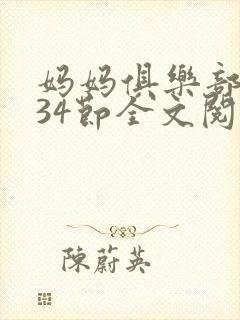 妈妈俱樂部
34節全文閱
陳蔚英